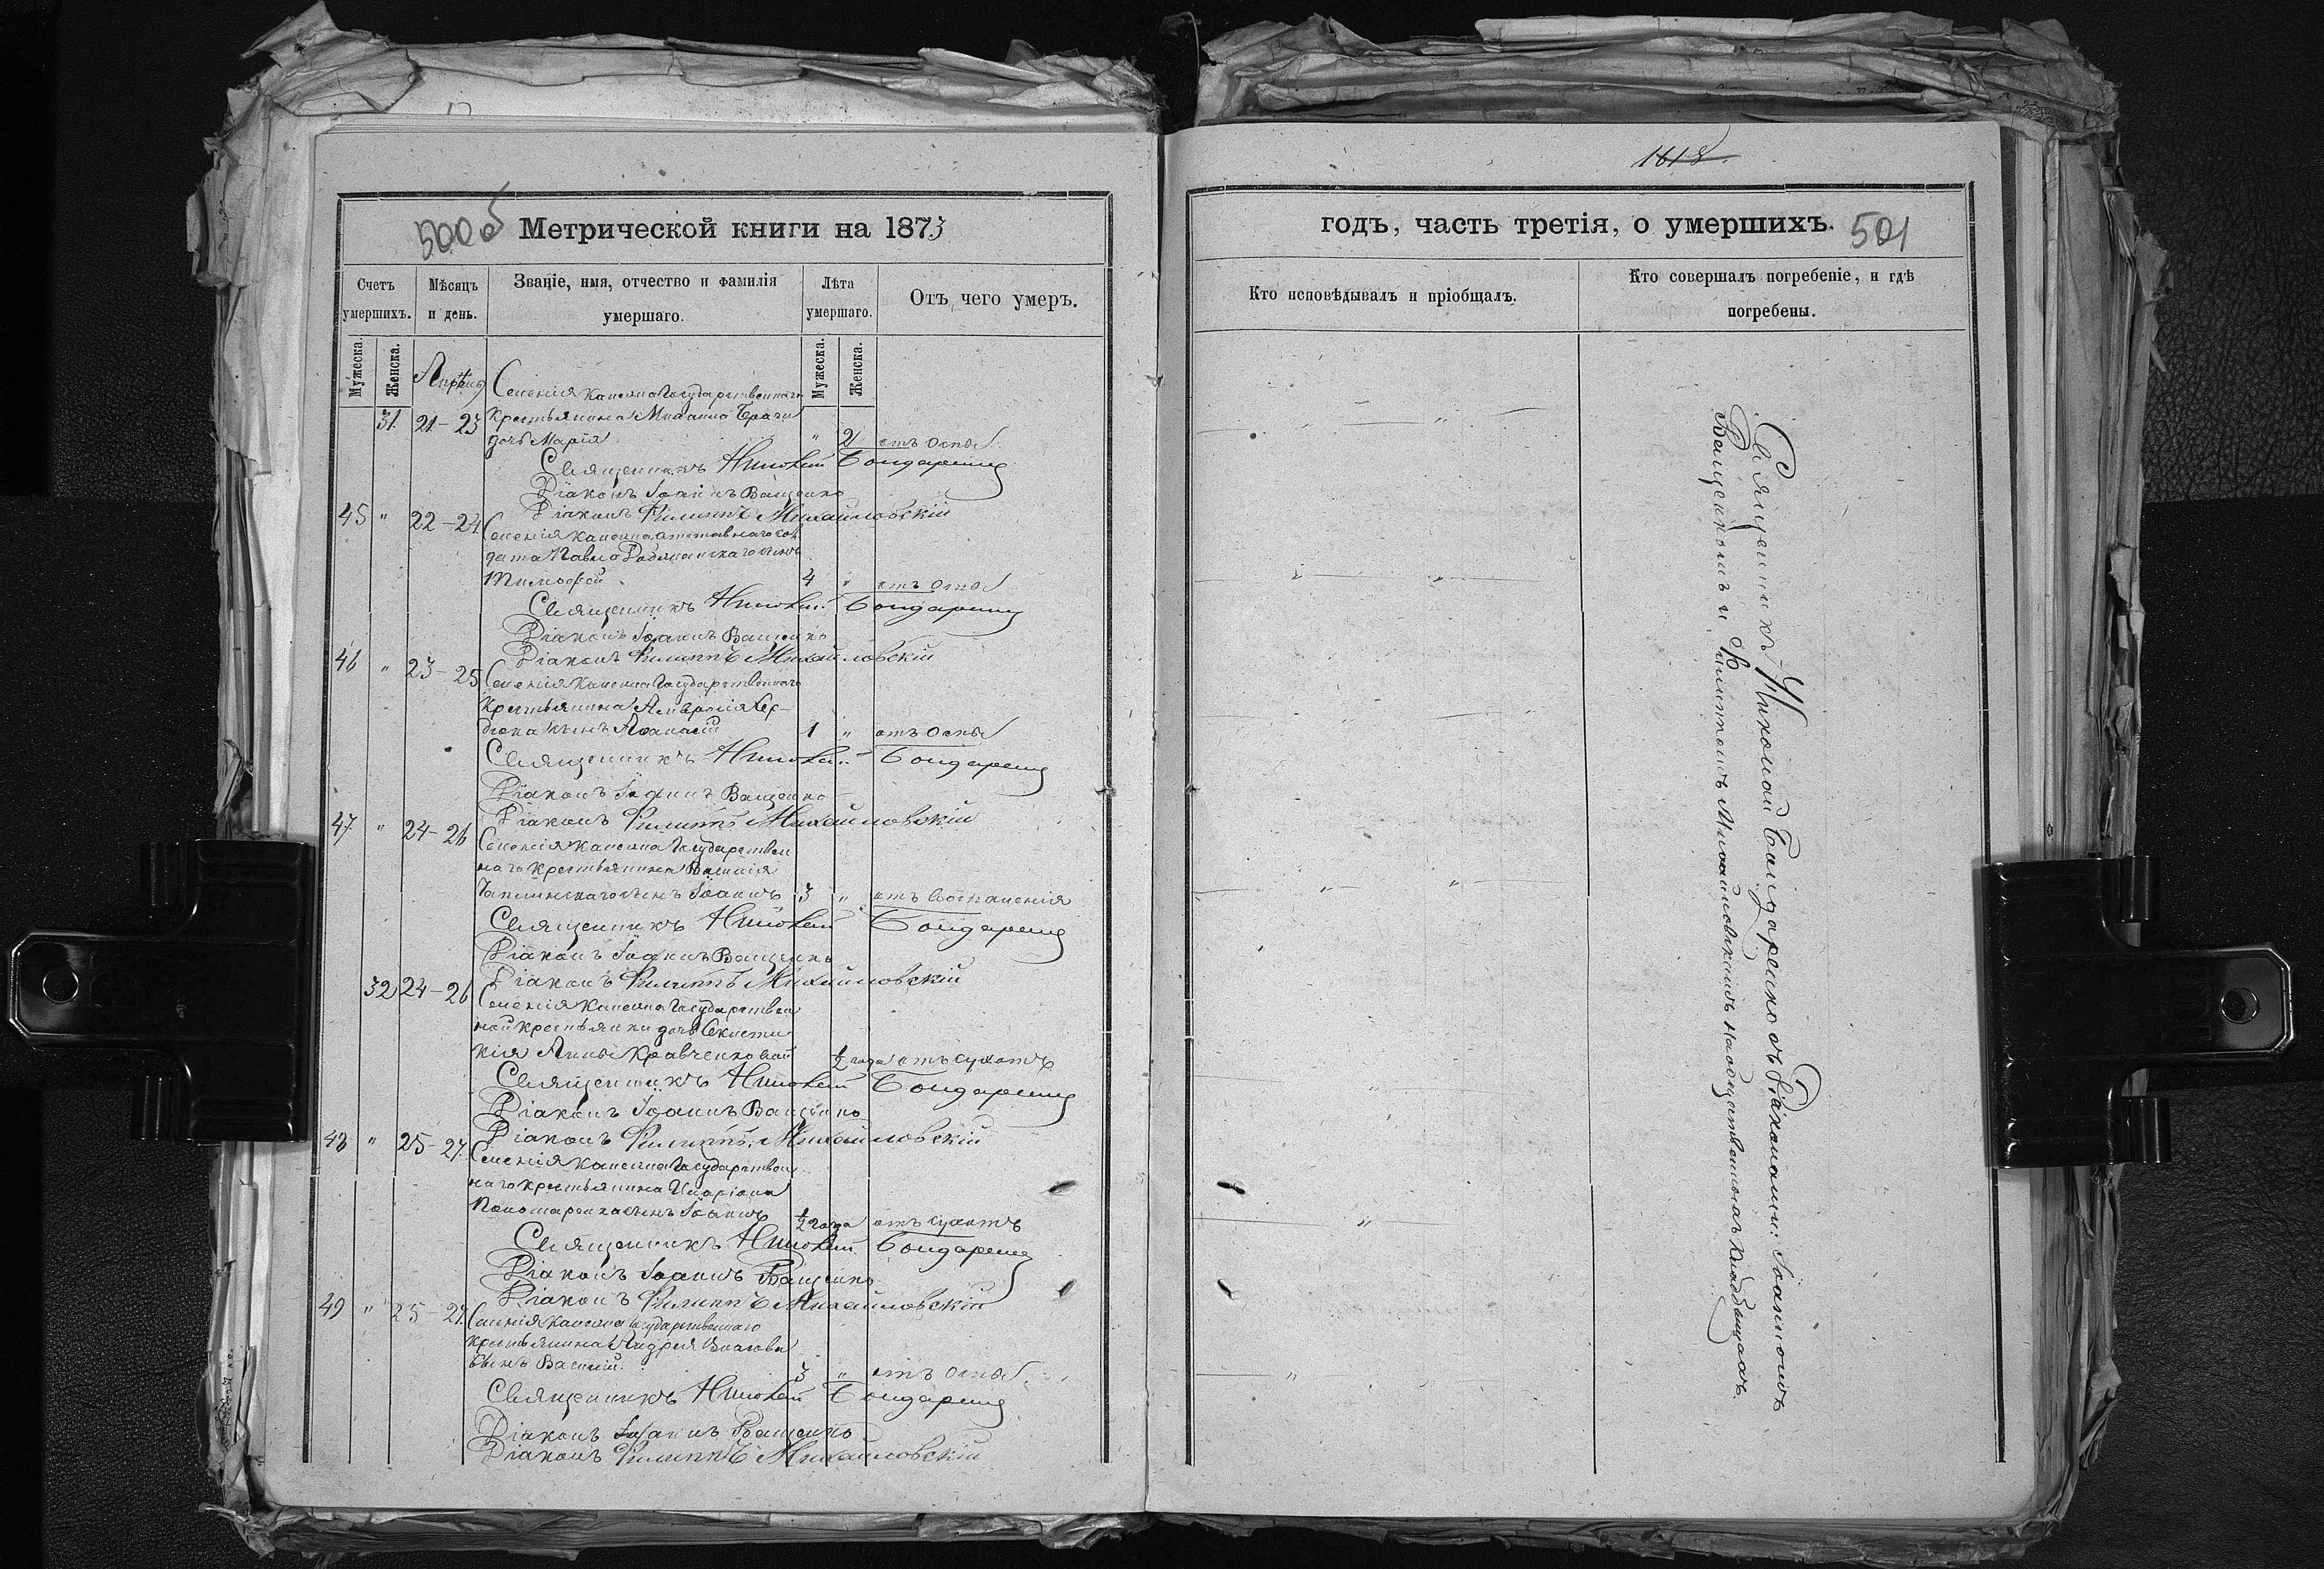 500об
Метрической книги на 1873
Счетъ умершихъ.
Мѣсяцъ и день.
Званіе, имя, отчество и фамилія умершаго.
Лѣта умершаго.
Отъ чего умеръ.
Мужеска.
Женска.
Мужеска.
Женска.
Апрѣль
Селенія Каменка Государственнаго
31. 21-23 крестьянина Михаила
дочь Марія " 2 отъ оспы
Священникъ Николай Бондаренко
Діаконъ Іоаннъ Ващенко
Діаконъ Филиппъ Михайловскій
45 " 22-24
Селенія Каменка отставнаго сол
дата Павла сынъ
Тимофей 4 " отъ оспы
Священникъ Николай Бондаренко
Діаконъ Іоаннъ Ващенко
Діаконъ Филиппъ Михайловскій
46 " 23-25
Селенія Каменка Государственнаго
крестьянина
сынъ Афанасій 1 " отъ оспы
Священникъ Николай Бондаренко
Діаконъ Іоаннъ Ващенко
Діаконъ Филиппъ Михайловскій
47 " 24-26
Селенія Каменка Государствен
наго крестьянина Василія
сынъ Іоаннъ 3 " отъ воспаленія
Священникъ Николай Бондаренко
Діаконъ Іоаннъ Ващенко
Діаконъ Филиппъ Михайловскій
32 24-26
Селенія Каменка Государствен
ной крестьянки дочь
Анны Кравченковой ½ года отъ сухотъ
Священникъ Николай Бондаренко
Діаконъ Іоаннъ Ващенко
Діаконъ Филиппъ Михайловскій
48 " 25-27.
Селенія Каменка Государствен
наго крестьянина Иларіона
Пономаренка сынъ Іоаннъ ½ года отъ сухотъ
Священникъ Николай Бондаренко
Діаконъ Іоаннъ Ващенко
Діаконъ Филиппъ Михайловскій
49 " 25-27.
Селенія Каменка Государственнаго
крестьянина Андрея Власова
сынъ Василій. 3 " отъ оспы
Священникъ Николай Бондаренко
Діаконъ Іоаннъ Ващенко
Діаконъ Филиппъ Михайловскій
1618.
годъ, часть третія, о умершихъ. 501
Кто исповѣдывалъ и пріобщалъ.
Кто совершалъ погребеніе, и гдѣ погребены.
Священникъ Николай Бондаренко съ Діаконами: Іоанномъ
Ващенкомъ и Филиппомъ Михайловскимъ на общественномъ кладбищахъ.